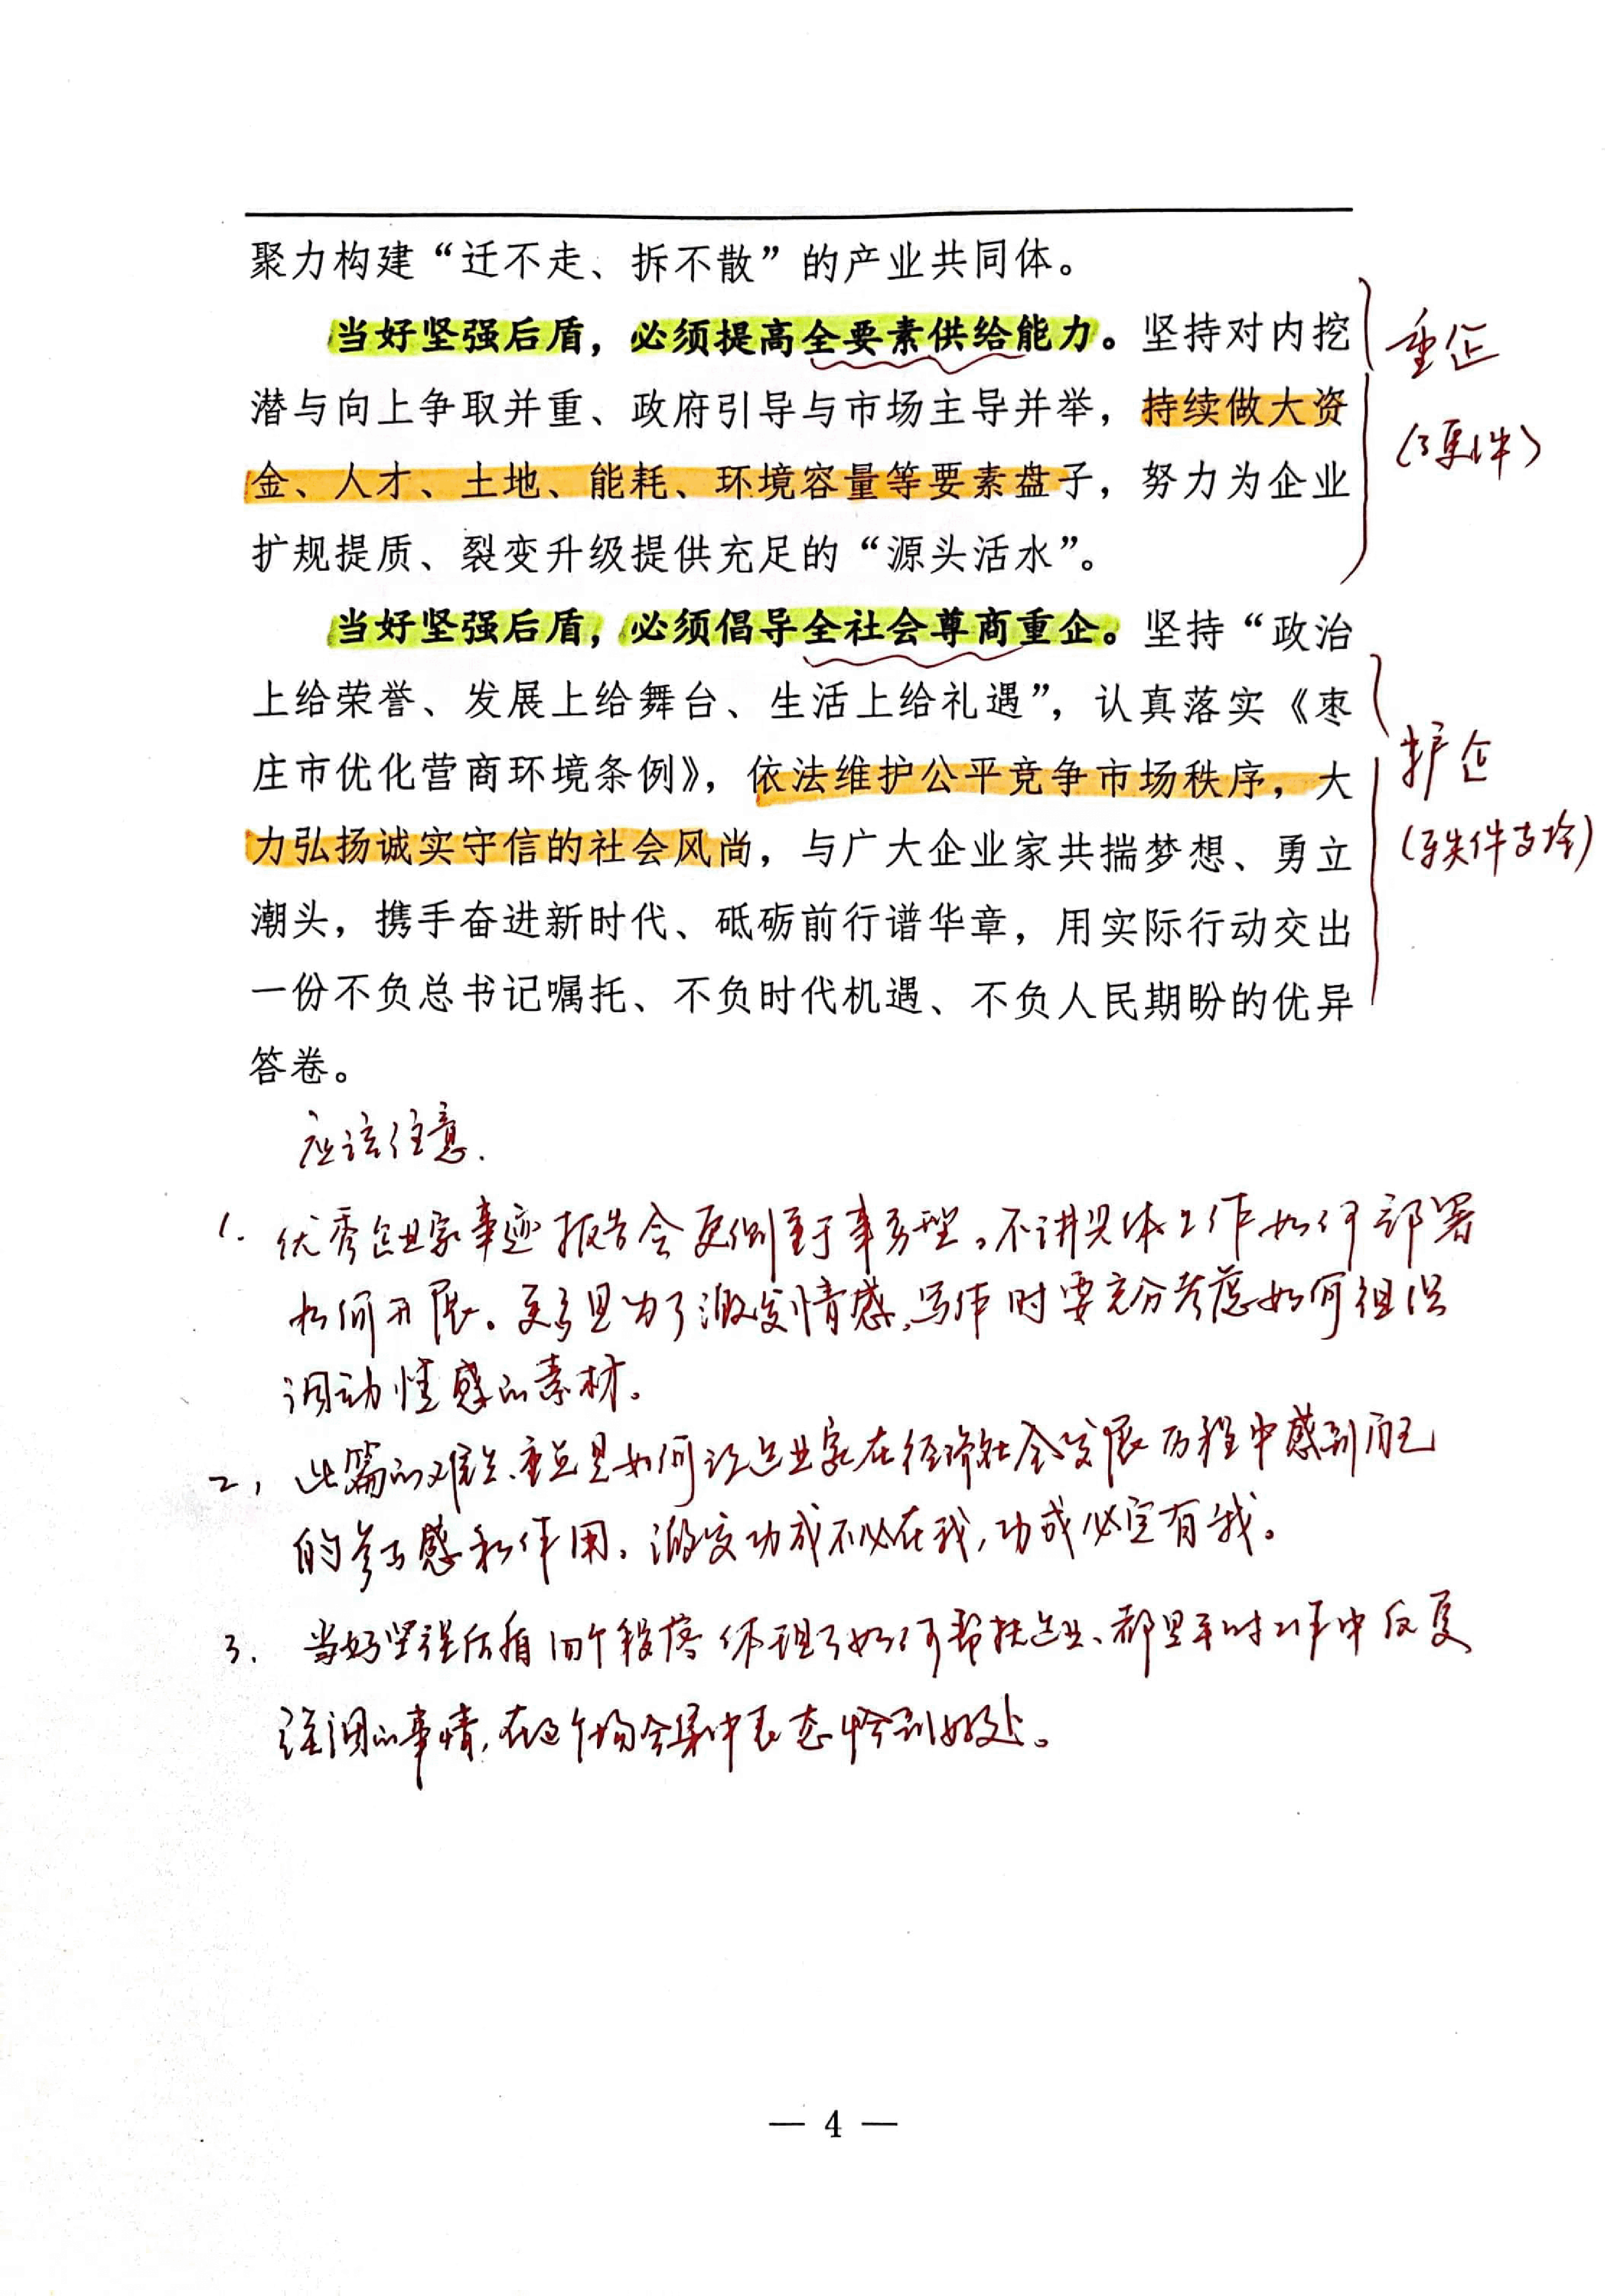 聚力构建“迁不走、拆不散”的产业共同体。
当好坚强后盾，必须提高全要素供给能力。坚持对内挖
潜与向上争取并重、政府引导与市场主导并举，持续做大资
金、人才、土地、能耗、环境容量等要素盘子，努力为企业
扩规提质、裂变升级提供充足的“源头活水”。
重企
（硬件）
当好坚强后盾，必须倡导全社会尊商重企。坚持“政治
上给荣誉、发展上给舞台、生活上给礼遇”，认真落实《枣
庄市优化营商环境条例》，依法维护公平竞争市场秩序，大
力弘扬诚实守信的社会风尚，与广大企业家共揣梦想、勇立
潮头，携手奋进新时代、砥砺前行谱华章，用实际行动交出
一份不负总书记嘱托、不负时代机遇、不负人民期盼的优异
答卷。
护企
应该注意.
1. 优秀企业家事迹报告会更侧重于事务型。不讲具体工作如何部署
如何开展。更多是为了激发情感,写作时要充分考虑如何组织
调动情感的素材。
2, 此篇的难点、重点是如何让企业家在经济社会发展历程中感到自己
的参与感和作用。激发功成不必在我,功成必定有我。
3. 当好坚强后盾四个段落体现了如何帮扶企业、都是平时工作中反复
强调的事情,在这个场合集中表态恰到好处。
— 4 —